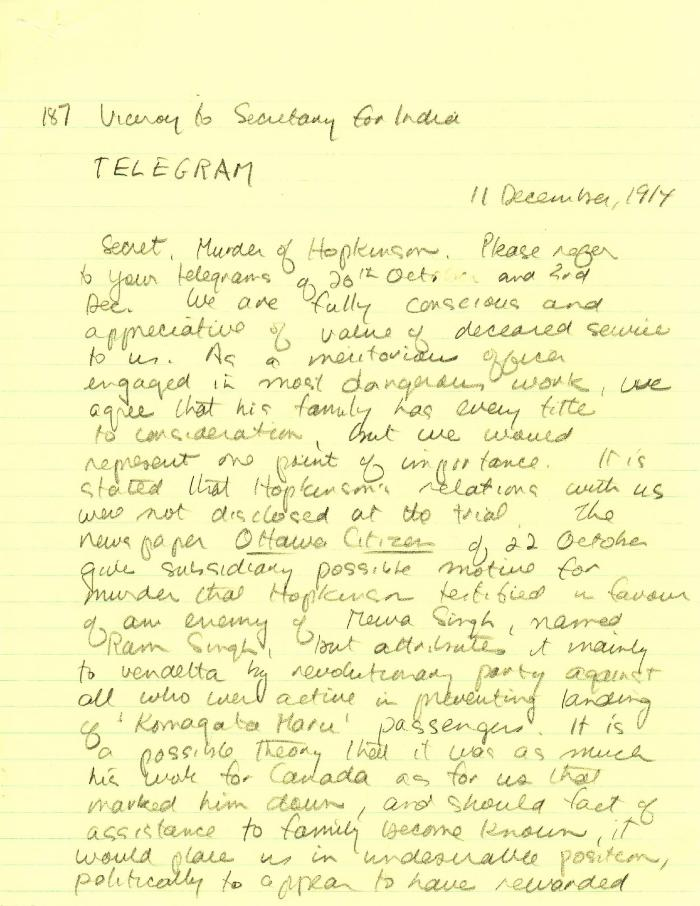 187 Viceroy to Secretary for India
TELEGRAM
11 December, 1914
Secret. Murder of Hopkinson. Please refer
to your telegrams of 20th Oct and 2nd
Dec. We are fully conscious and
appreciative of value of deceased service
to us. As a meritorious officer
engaged in most dangerous work, we
agree that his family has every title
to consideration, but we would
represent one point of importance. It is
stated that Hopkinson's relations with us
were not disclosed at the trial. The
newspaper Ottawa Citizen of 22 October
give subsidiary possible motive for
murder that Hopkinson testified in favour
of an enemy of Mewa Singh, named
Ram Singh, but attributes it mainly
to vendetta by revolutionary party against
all who were active in preventing landing
of 'Komagata Maru' passengers. It is
a possible theory that it was as much
his work for Canada as for us that
marked him down, and should fact of
assistance to family become known, it
would place us in undesirable position,
politically to appear to have rewarded